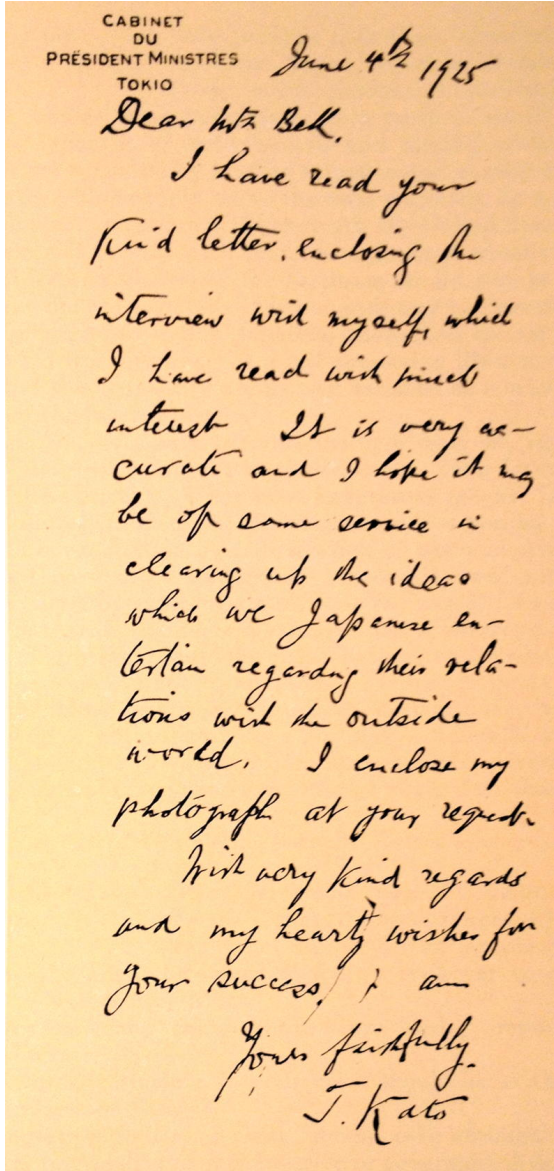 CABINET
DU
PRÉSIDENT MINISTRES
TOKIO
June 4th 1925
Dear Mr Bell.
I have read your
kind letter, enclosing the
interview with myself, which
I have read with much
interest It is very ac-
curate and I hope it may
be of some service in
clearing up the ideas
which we Japanese en-
tertain regarding their rela-
tions with the outside
world. I enclose my
photograph at your request.
With very kind regards
and my hearty wishes for
your success, I am
Yours faithfully.
T. Kato